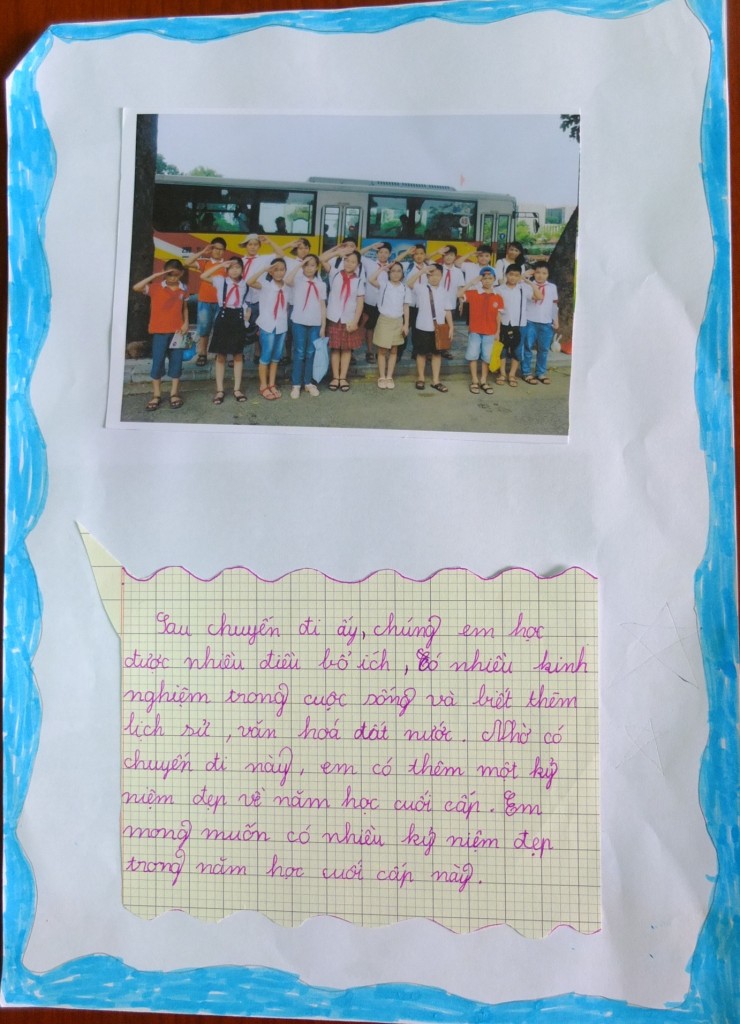 Sau chuyến đi ấy, chúng em học
được nhiều điều bổ ích, có nhiều kinh
nghiệm trong cuộc sống và biết thêm
lịch sử, văn hoá đất nước. Nhờ có
chuyến đi này, em có thêm một kỷ
niệm đẹp về năm học cuối cấp. Em
mong muốn có nhiều kỷ niệm đẹp
trong năm học cuối cấp này.